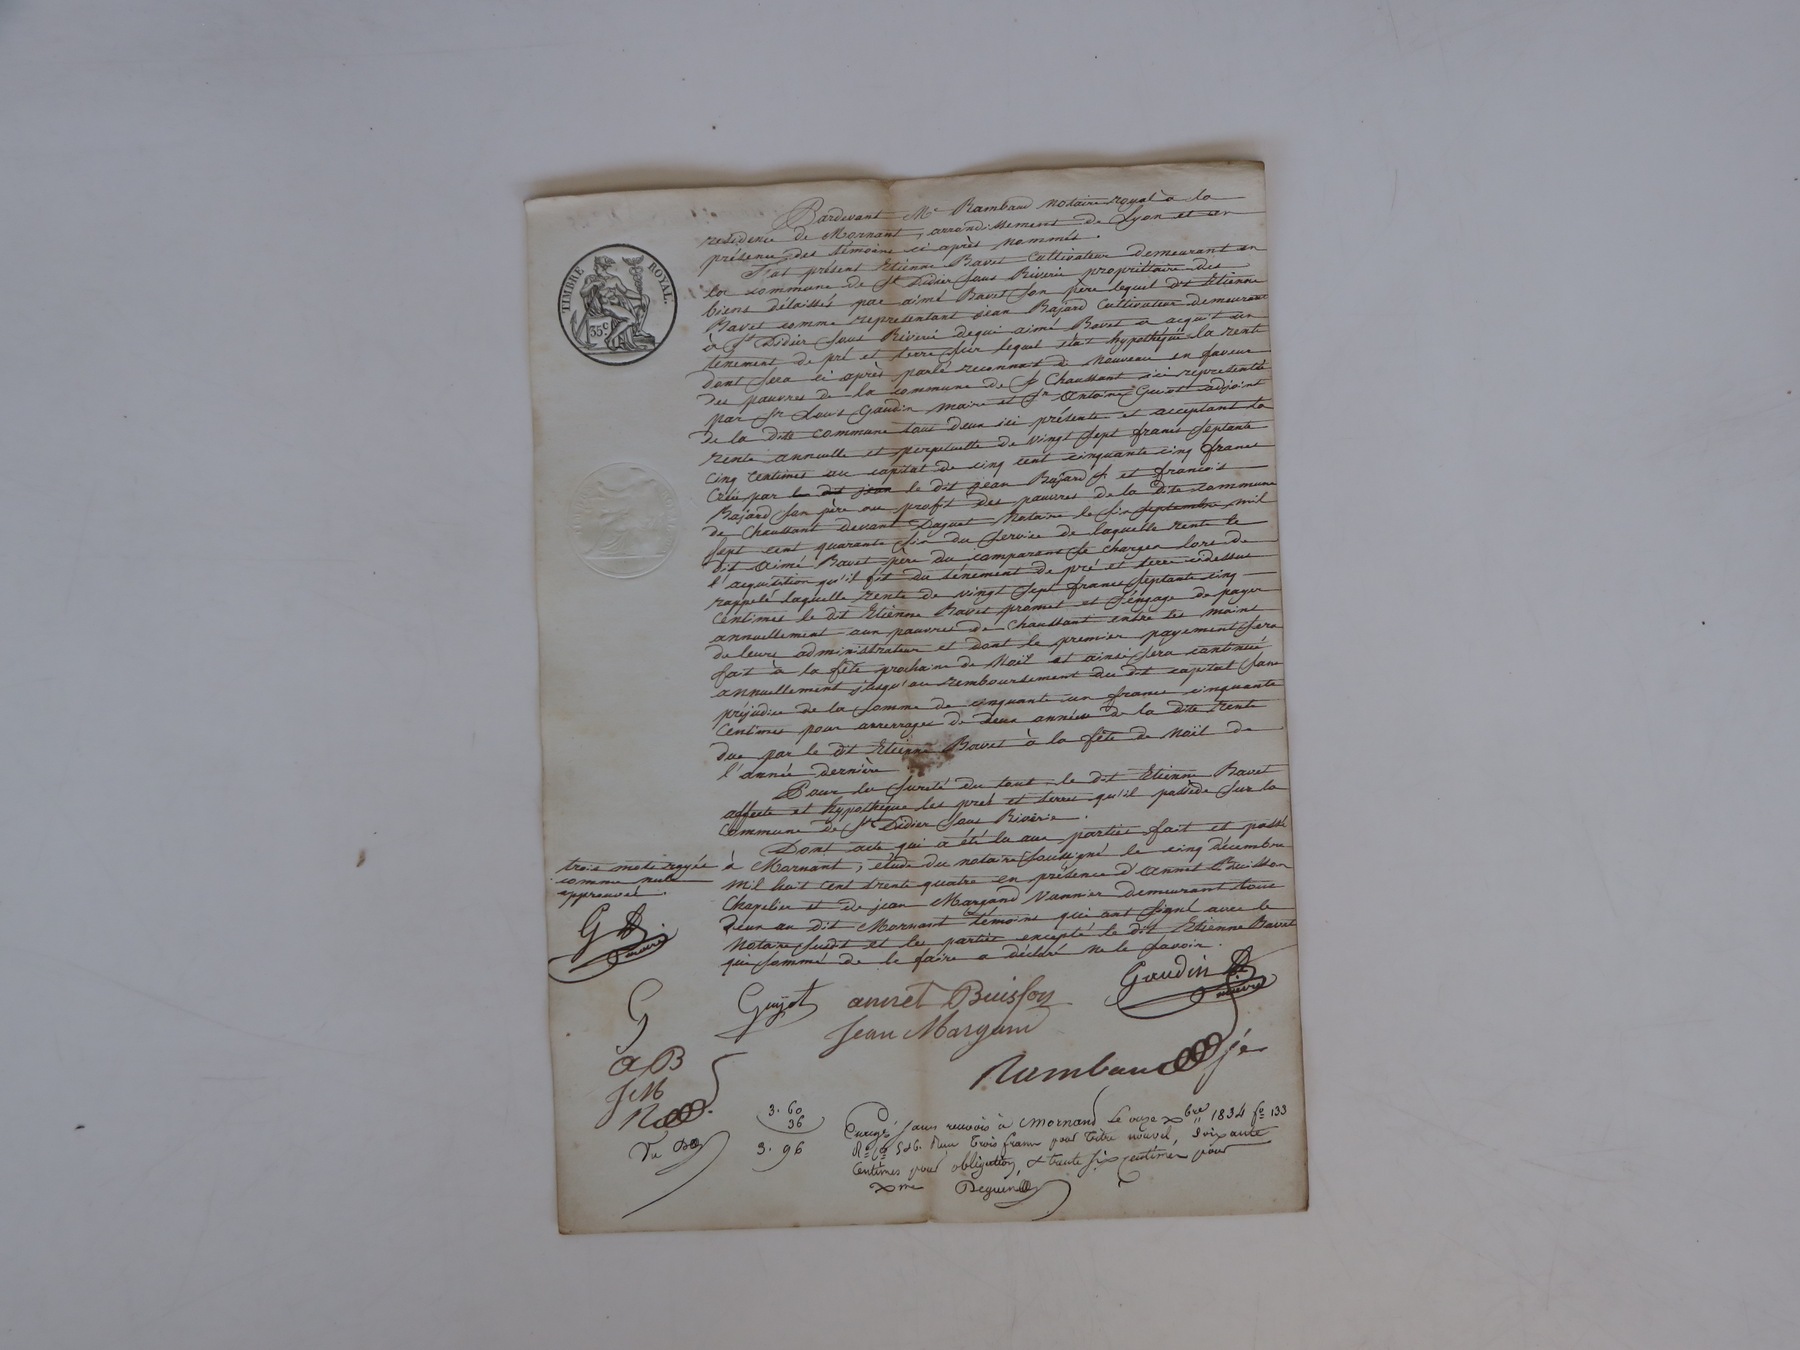 TIMBRE ROYAL.
35c
Pardevant Me Rambaud notaire royal à la
résidence de Mornant, arrondissement de Lyon et en
présence des témoins ci après nommés.
Fut présent Etienne Bavet Cultivateur demeurant en
la commune de St Didier sous Riverie propriétaire des
biens délaissés par aimé Bavet son père lequel dit Etienne
Bavet comme representant jean Bajard Cultivateur demeurant
à St Didier sous Riverie dequi aimé Bavet a acquit un
tenement de pré et terre sur lequel était hypothéqué la rente
dont sera ci après parlé reconnait de nouveau en faveur
des pauvres de la commune de St Chaussant ici representée
par Sr Louis Gaudin maire et Sr Antoine Guiot adjoint
de la dite commune tous deux ici présents et acceptant la
rente annuelle et perpetuelle de vingt sept francs septante
cinq centimes au capital de cinq cent cinquante cinq francs
Créé par le dit jean le dit jean Bajard et francois
Bajard son père au profit des pauvres de la dite commune
de Chaussant devant Daguet Notaire le six septembre mil
sept cent quarante six du service de laquelle rente le
dit Aimé Bavet père du comparant se chargea lors de
l'acquisition qu'il fit du tenement de pré et terre cidessus
rappelé laquelle rente de vingt sept francs septante cinq
Centimes le dit Etienne Bavet promet et s'engage de payer
annuellement aux pauvres de Chaussant entre les mains
de leurs administrateur et dont le premier payement sera
fait à la fête prochaine de Noël et ainsi sera continué
annuellement jusqu'au remboursement du dit capital sans
préjudice de la somme de cinquante un francs cinquante
Centimes pour arrerages de deux années de la dite rente
due par le dit Etienne Bavet à la fête de Noël de
l'année dernière
Pour la sureté du tout le dit Etienne Bavet
affecte et hypothèque les prés et terres qu'il possède sur la
commune de St Didier sous Riverie.
Dont acte qui a été lu aux parties fait et passé
à Mornant, étude du notaire soussigné le cinq décembre
mil huit cent trente quatre en présence d'annet Buisson
Chapelier et de jean Margand Vannier demeurant tous
deux au dit Mornant témoins qui ont signé avec le
Notaire susdit et les parties excepté le dit Etienne Bavet
qui sommé de le faire a déclaré ne le savoir.
trois mots rayés
comme nuls
approuvés.
G
maire
Gaudin
maire
G
Guyot
annet Buisson
Jean Margand
a B
J M
R
Rambaud
Vu
3. 60
36
3. 96
Enregé sans renvois à Mornand le onze Xbre 1834 fo 133
Ro Reçu trois francs pour titre nouvel, soixante
Centimes pour obligation, & trente six centimes pour
Xme Deguin